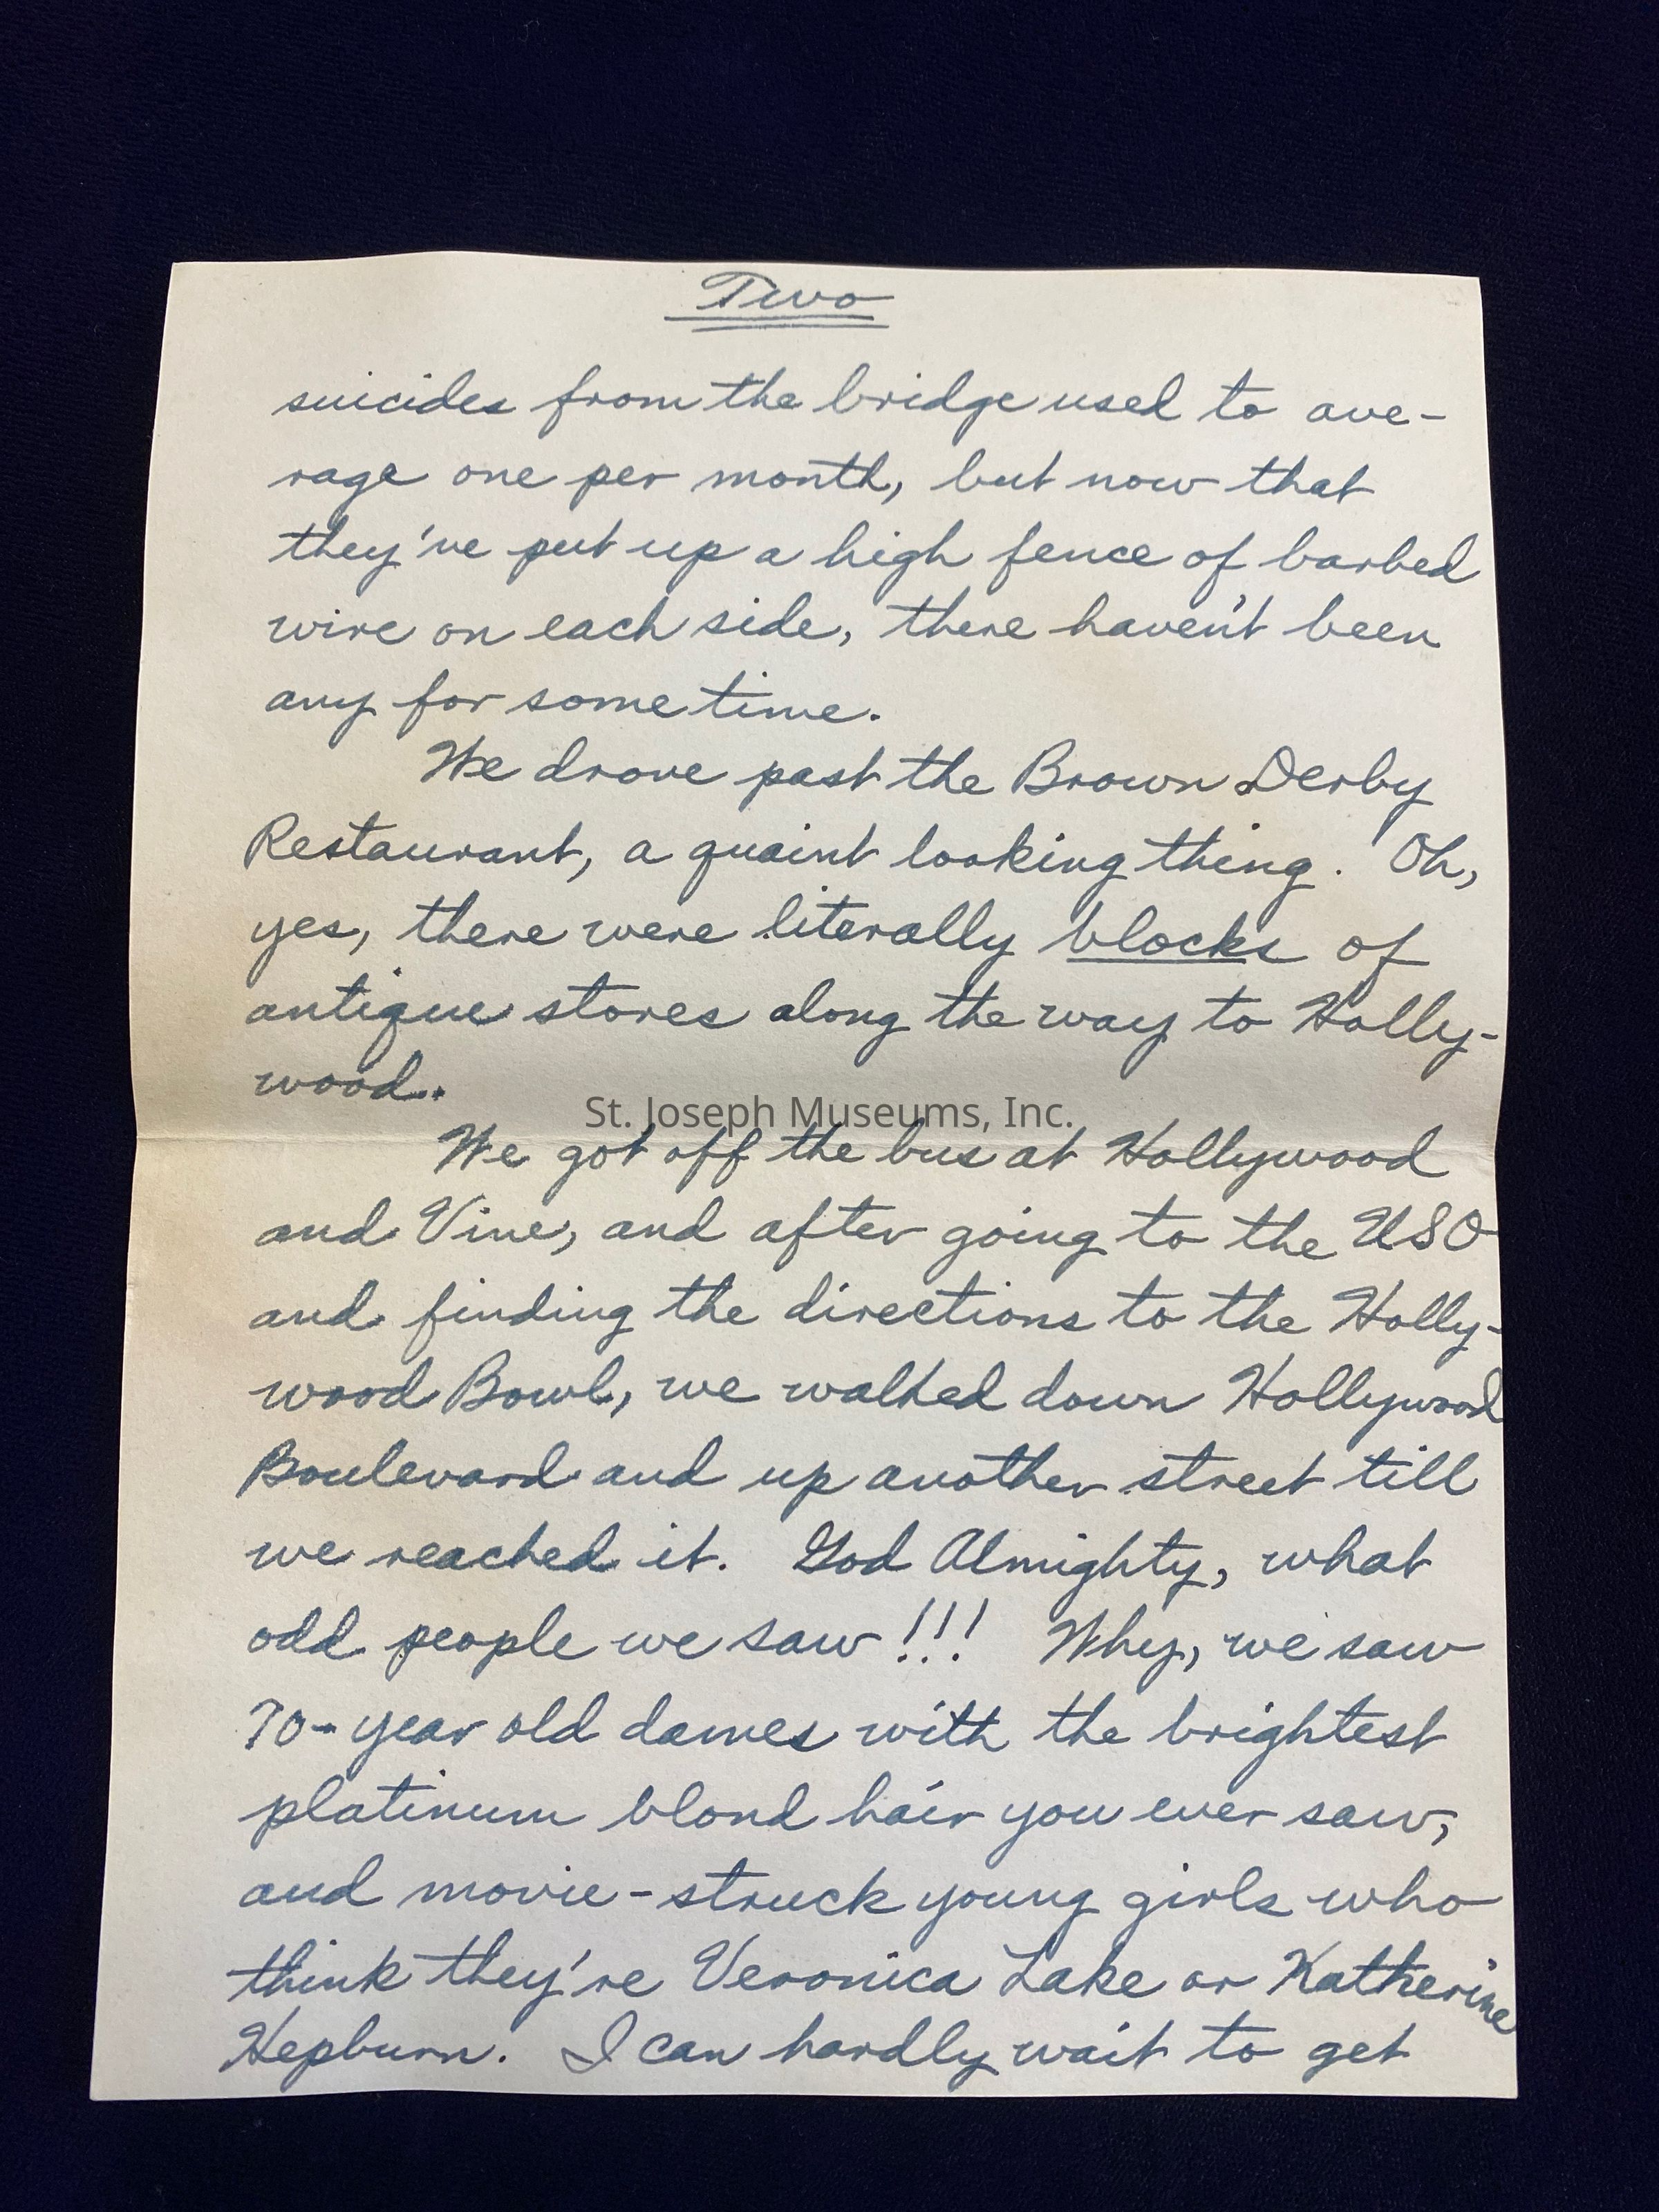 Two
suicides from the bridge used to ave-
rage one per month, but now that
they've put up a high fence of barbed
wire on each side, there haven't been
any for some time.
We drove past the Brown Derby
Restaurant, a quaint looking thing. Oh,
yes, there were literally blocks of
antique stores along the way to Holly-
wood.
St. Joseph Museums, Inc.
We got off the bus at Hollywood
and Vine, and after going to the USO
and finding the directions to the Holly-
wood Bowl, we walked down Hollywood
Boulevard and up another street till
we reached it. God Almighty, what
odd people we saw!!! Why, we saw
70-year old dames with the brightest
platinum blond hair you ever saw,
and movie-struck young girls who
think they're Veronica Lake or Katherine
Hepburn. I can hardly wait to get